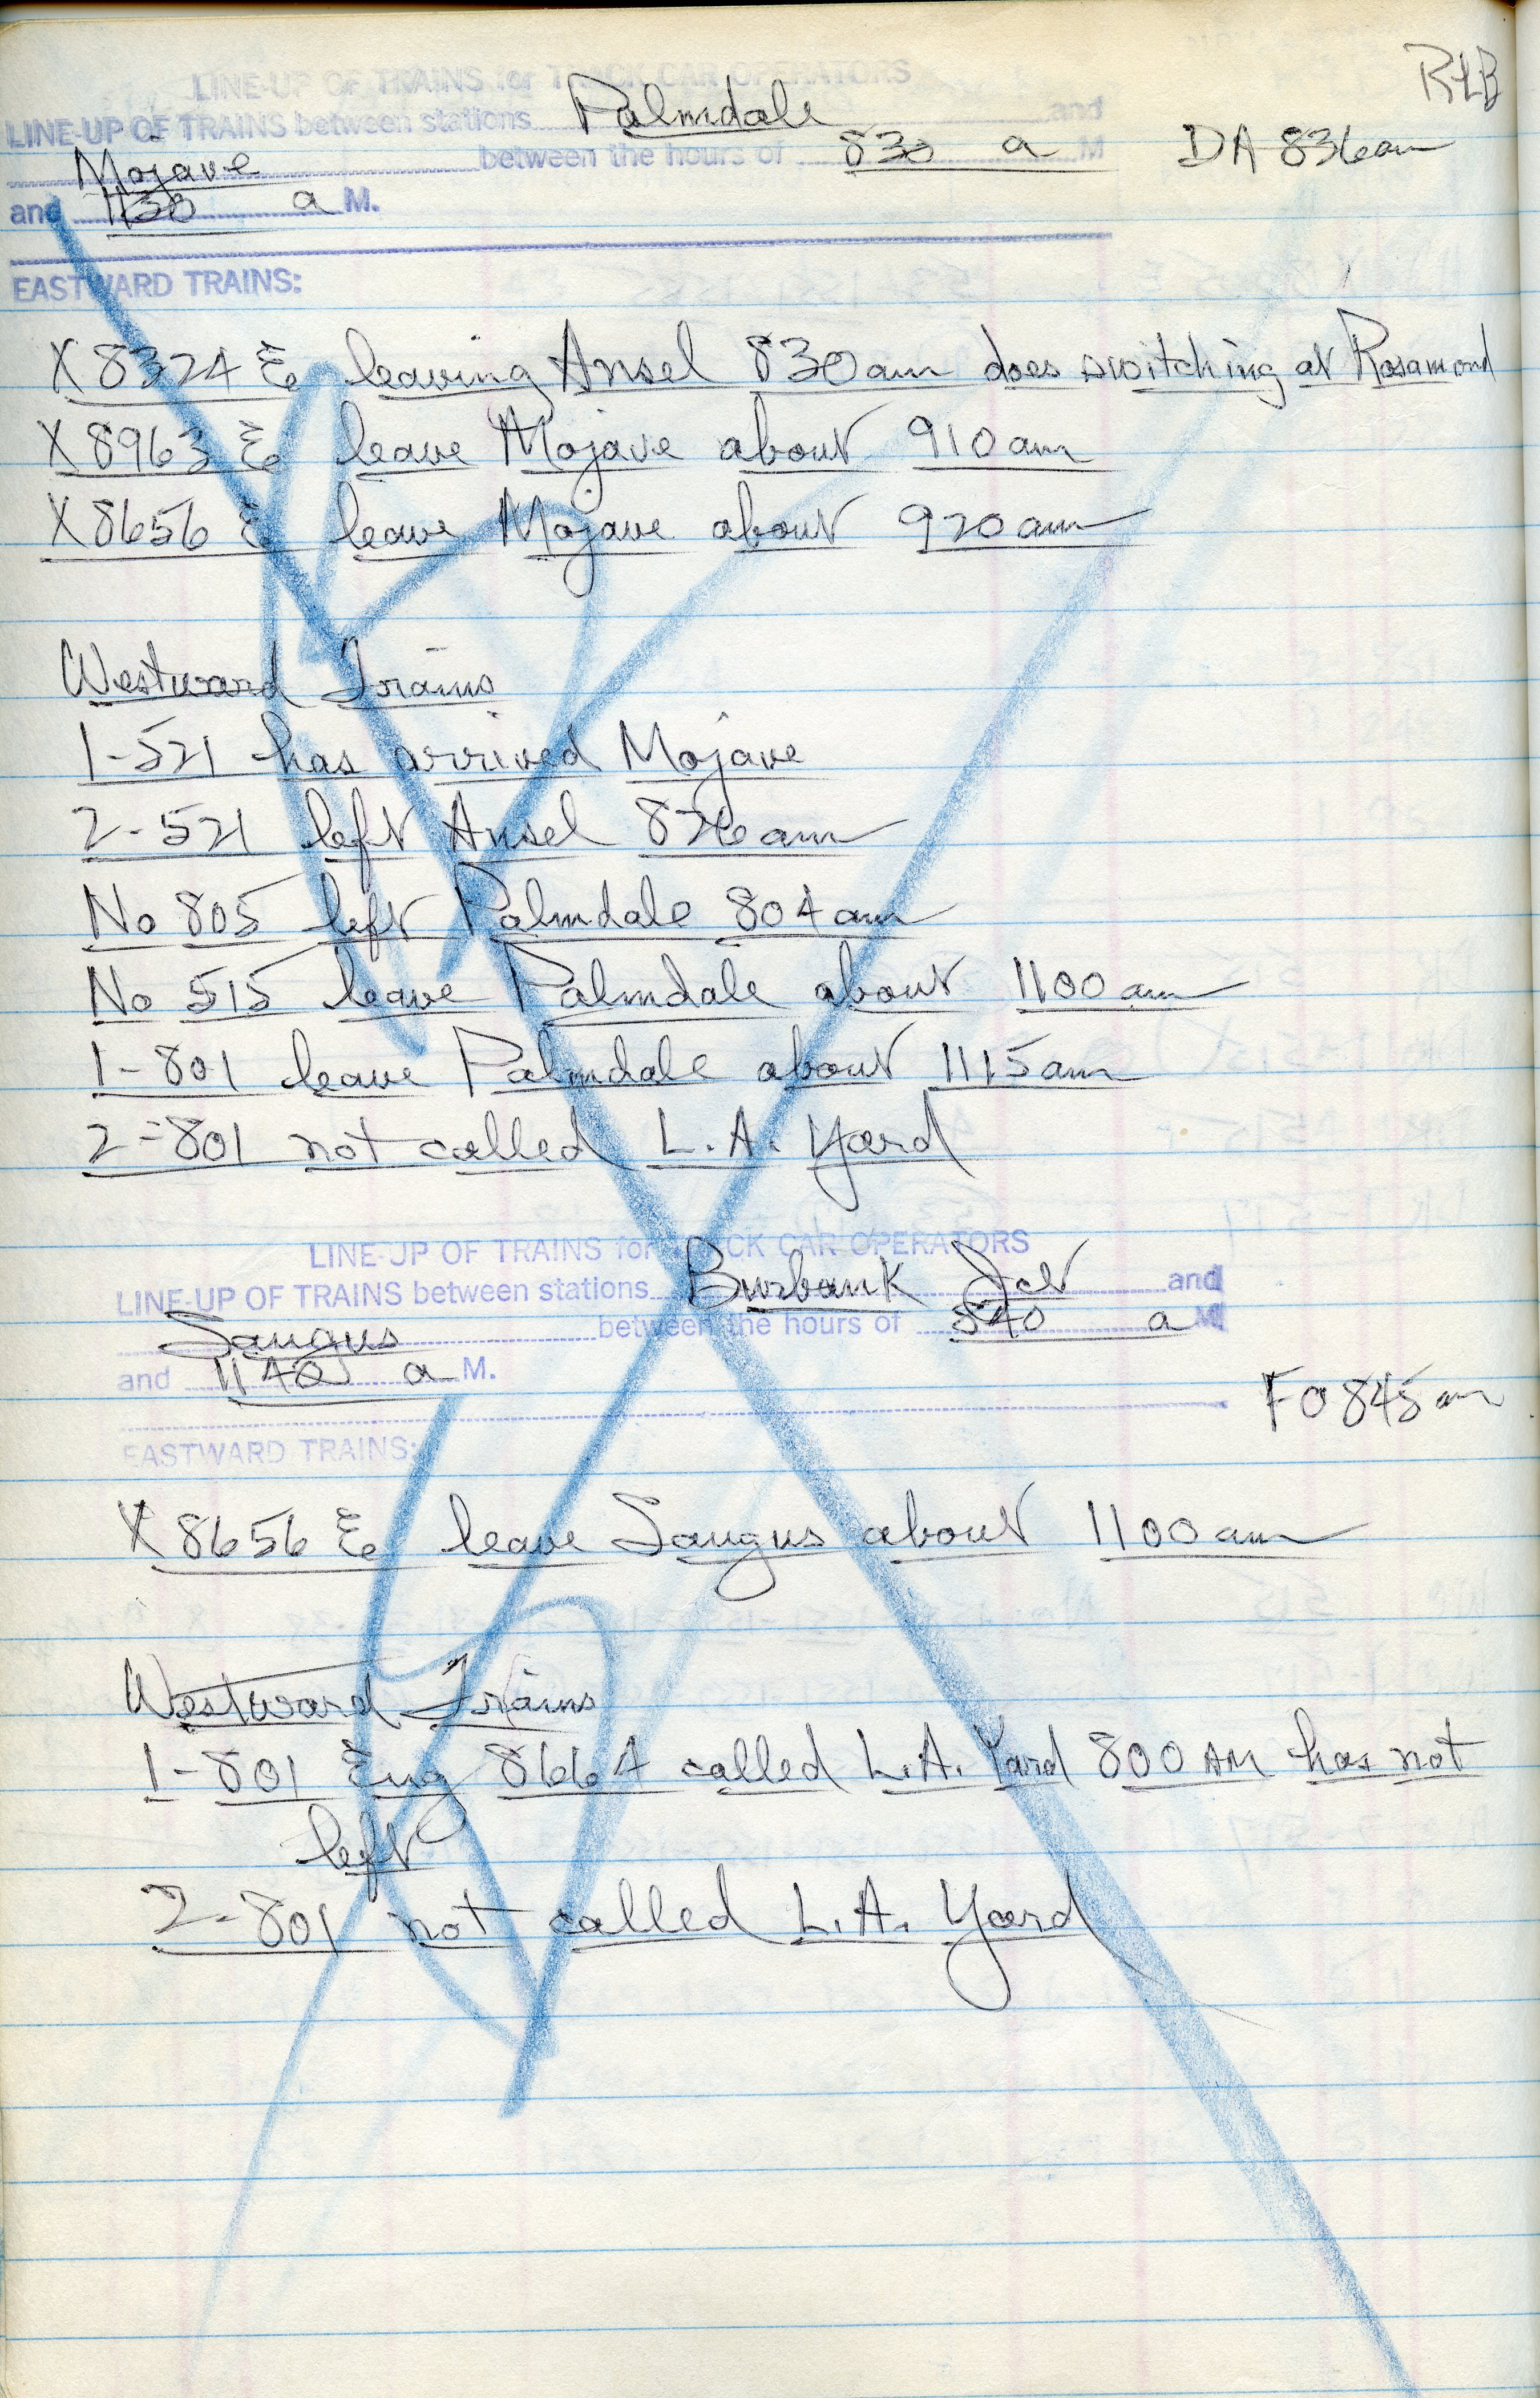 RLB
LINE-UP OF TRAINS for TRACK CAR OPERATORS
LINE-UP OF TRAINS between stations Palmdale and
Mojave between the hours of 830 a M DA 836am
and 1130 a M.
EASTWARD TRAINS:
X8324 E leaving Ansel 830am does switching at Rosamond
X8963 E leave Mojave about 910am
X8656 E leave Mojave about 920am
Westward Trains
1-521 has arrived Mojave
2-521 left Ansel 826am
No 805 left Palmdale 804am
No 515 leave Palmdale about 1100am
1-801 leave Palmdale about 1115am
2-801 not called L.A. Yard
LINE-UP OF TRAINS for TRACK CAR OPERATORS
LINE-UP OF TRAINS between stations Burbank Jct and
Saugus between the hours of 840 a M
and 1140 a M.
FO 845am
EASTWARD TRAINS:
X8656 E leave Saugus about 1100am
Westward Trains
1-801 Eng 8664 called L.A. Yard 800 AM has not
left
2-801 not called L.A. Yard